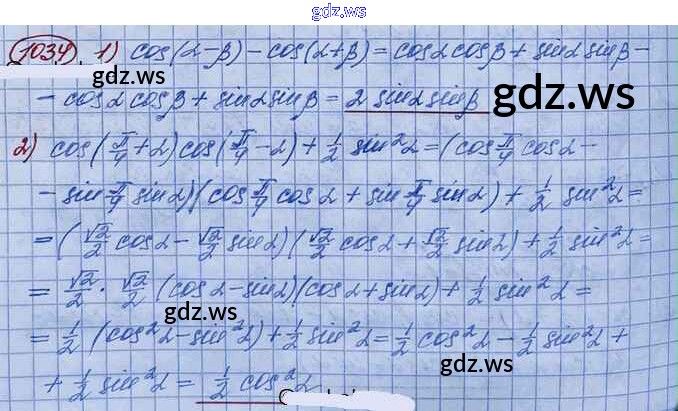 gdz.ws
1034 1) cos(α-β) - cos(α+β) = cosα cosβ + sinα sinβ -
gdz.ws
- cosα cosβ + sinα sinβ = 2 sinα sinβ gdz.ws
2) cos(π/4 + α) cos(π/4 - α) + 1/2 sin²α = (cos π/4 cosα -
- sin π/4 sinα)(cos π/4 cosα + sin π/4 sinα) + 1/2 sin²α =
= (√2/2 cosα - √2/2 sinα)(√2/2 cosα + √2/2 sinα) + 1/2 sin²α =
= √2/2 · √2/2 (cosα - sinα)(cosα + sinα) + 1/2 sin²α =
gdz.ws
= 1/2 (cos²α - sin²α) + 1/2 sin²α = 1/2 cos²α - 1/2 sin²α +
gdz.ws
+ 1/2 sin²α = 1/2 cos²α